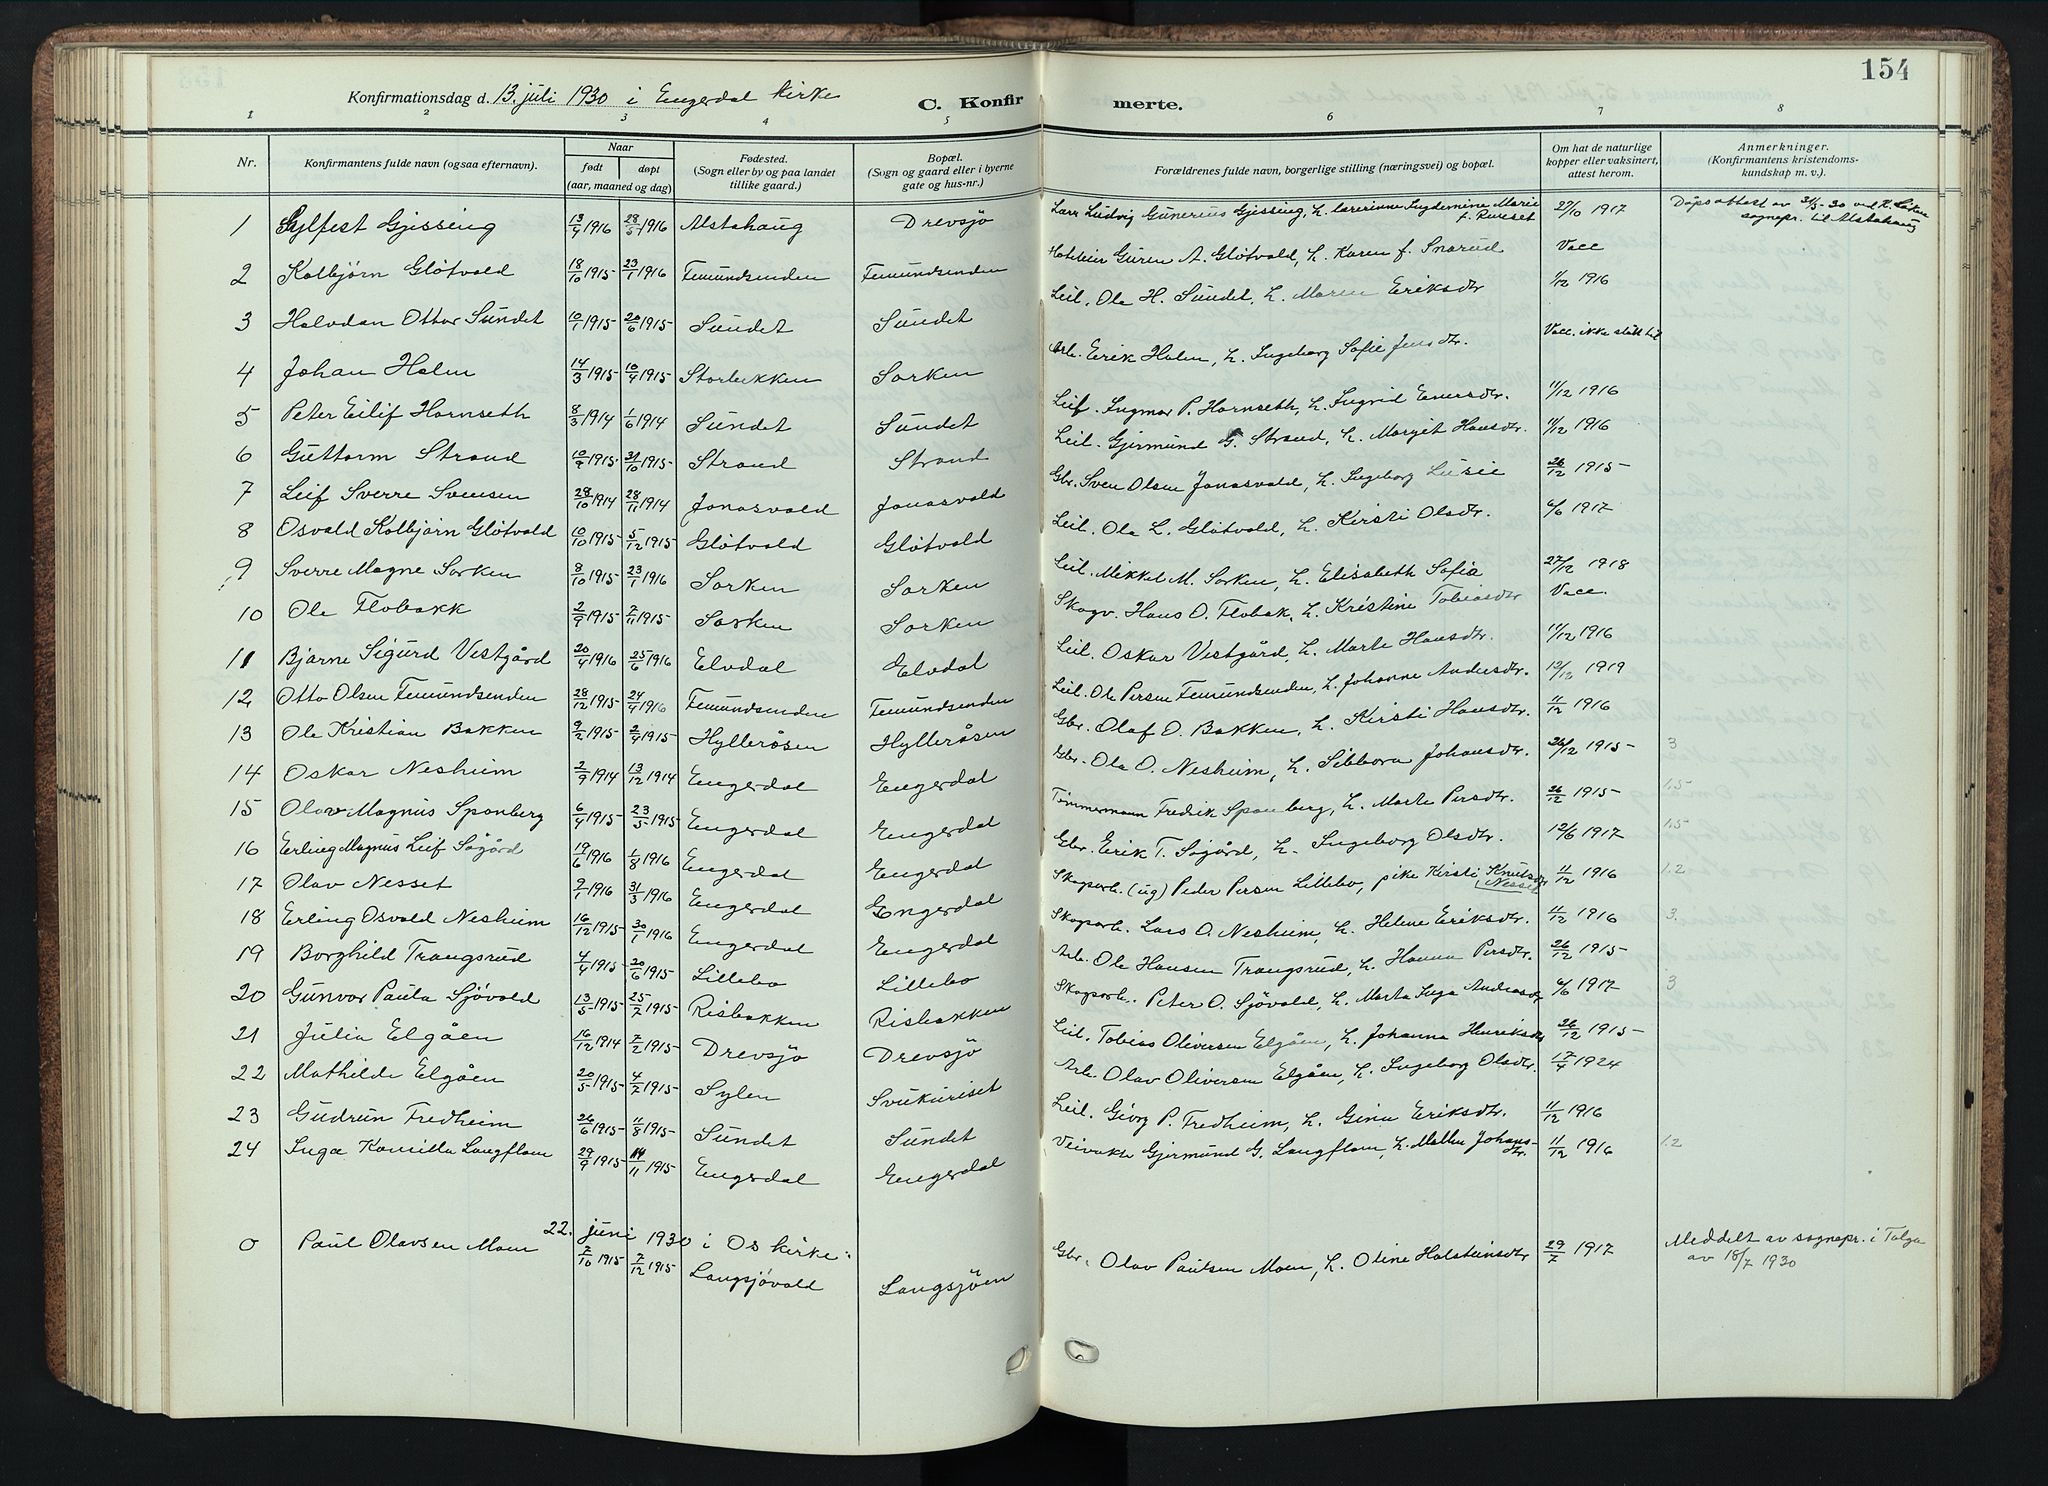 154
Konfirmationsdag d. 13. juli 1930 i Engerdal kirke
C. Konfirmerte.
1 2 3 4 5 6 7 8
Nr. Konfirmantens fulde navn (ogsaa efternavn). Naar født døpt (aar, maaned og dag) Fødested. (Sogn eller by og paa landet tillike gaard.) Bopæl. (Sogn og gaard eller i byerne gate og hus-nr.) Forældrenes fulde navn, borgerlige stilling (næringsvei) og bopæl. Om hat de naturlige kopper eller vaksinert, attest herom. Anmerkninger. (Konfirmantens kristendomskundskap m. v.).
1 Sylfest Gjissing 13/4 1916 28/5 1916 Alstahaug Drevsjø Lærer Ludvig Gunerius Gjissing, h. lærerinne Ingdemine Marie f. 27/10 1917 Dåpsattest av 31/5-30 ved sognepr. til Alstahaug
2 Kolbjørn Gløtvold 18/10 1915 23/1 1916 Femundsenden Femundsenden Guren A. Gløtvold, h. Karen f. Snarud Vacc
3 Halvdan Ottar Sundet 10/1 1915 20/6 1915 Sundet Sundet Leil. Ola H. Sundet, h. Maren Eriksdtr 1/12 1916
4 Johan Holm 14/3 1915 10/4 1915 Storbekken Sorken Arb. Erik Holm, h. Ingeborg Sofie Jensdtr. Vacc. ikke slått til
5 Peter Eilif Hornseth 8/3 1914 1/6 1914 Sundet Sundet Leil. Ingmar P. Hornseth, h. Ingrid Eversdtr. 11/12 1916
6 Guttorm Strand 10/9 1915 31/10 1915 Strand Strand Leil. Gjermund G. Strand, h. Margit Hansdtr. 11/12 1916
7 Leif Sverre Svensen 28/10 1914 28/11 1914 Jonasvold Jonasvold Gbr. Sven Olsen Jonasvold, h. Ingeborg Lusie 26/12 1915
8 Osvald Kolbjørn Gløtvold 10/10 1915 5/12 1915 Gløtvold Gløtvold Leil. Ole L. Gløtvold, h. Kirsti Olsdtr. 6/6 1917
9 Sverre Magne Sorken 8/10 1915 23/1 1916 Sorken Sorken Leil. Mikkel M. Sorken, h. Elisabeth Sofia 27/12 1918
10 Ole Flobakk 2/9 1915 7/11 1915 Sorken Sorken Skogv. Hans O. Flobak, h. Kristine Tobiasdtr Vacc.
11 Bjarne Sigurd Vestgård 20/4 1916 25/6 1916 Elvdal Elvdal Leil. Oskar Vestgård, h. Marte Hansdtr. 11/12 1916
12 Otto Olsen Femundsenden 28/12 1915 24/4 1916 Femundsenden Femundsenden Leil. Ole Persen Femundsenden, h. Johanne Andersdtr. 12/12 1919
13 Ole Kristian Bakken 9/2 1915 2/4 1915 Hylleråsen Hylleråsen Gbr. Olaf O. Bakken, h. Kirsti Hansdtr. 11/12 1916
14 Oskar Nesheim 2/9 1914 13/12 1914 Engerdal Engerdal Gbr. Ola O. Nesheim, h. Sibbora Johansdtr. 26/12 1915 3
15 Olav Magnus Sponberg 6/4 1915 23/5 1915 Engerdal Engerdal Tømmermann Fredrik Sponberg, h. Marte Persdtr. 26/12 1915 1.5
16 Erling Magnus Leif Søgård 19/6 1916 1/8 1916 Engerdal Engerdal Gbr. Erik T. Søgård, h. Ingeborg Olsdtr. 12/6 1917 1.5
17 Olav Nesset 9/1 1916 31/3 1916 Engerdal Engerdal Skogarb. (ug) Peder Persen Lillebo, pike Kirsti Knutsdtr Nesset 11/12 1916 1.2
18 Erling Osvald Nesheim 16/12 1915 30/1 1916 Engerdal Engerdal Skogarb. Lars O. Nesheim, h. Helene Eriksdtr. 11/12 1916 3.
19 Borghild Trangsrud 4/4 1915 20/6 1915 Lillebo Lillebo Arb. Ole Hansen Trangsrud, h. Hanna Persdtr. 26/12 1915
20 Gunvor Paula Sjøvold 13/5 1915 25/7 1915 Risbakken Risbakken Skogarb. Peter O. Sjøvold, h. Marta Inga Andreasdtr 6/6 1917 3
21 Julia Elgåen 16/12 1914 7/2 1915 Drevsjø Drevsjø Leil. Tobias Oliversen Elgåen, h. Johanna Henriksdtr 26/12 1915
22 Mathilde Elgåen 20/5 1915 4/7 1915 Sylen Svukuriset Arb. Olav Oliversen Elgåen, h. Ingeborg Olsdtr. 17/4 1924
23 Gudrun Fredheim 26/6 1915 11/8 1915 Sundet Sundet Leil. Giørg P. Fredheim, h. Gina Eriksdtr. 11/12 1916
24 Inga Kamilla Langflom 29/9 1915 14/11 1915 Engerdal Engerdal Veivokte Gjermund G. Langflom, h. Mallen Johansdtr. 11/12 1916 1.2
22. juni 1930 i Os kirke:
0 Paul Olavsen Moen 7/10 1915 7/12 1915 Langsjøvold Langsjøen Gbr. Olav Paulsen Moen, h. Oline Holsteinsdtr 29/7 1917 Meddelt av sognepr. i Tolga av 18/7 1930